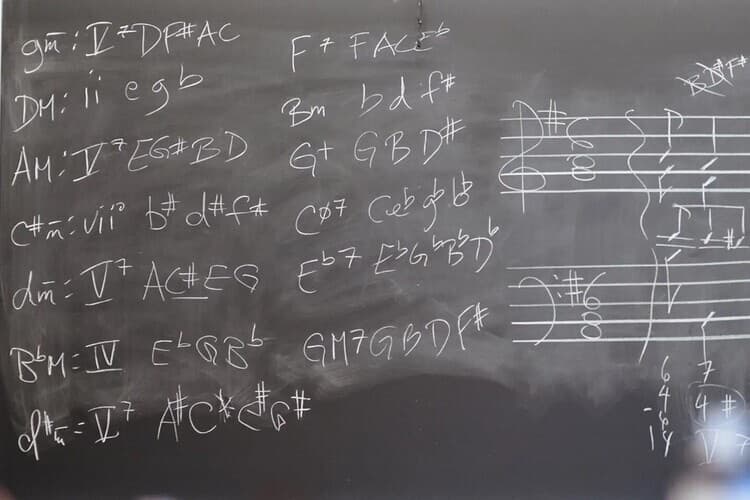 gm: V⁷ DF#AC
DM: ii e g b
AM: V⁷ EG#BD
c#m: vii° b# d# f#
dm: V⁷ AC#EG
B♭M: IV E♭GB♭
d#m: V⁷ A#C𝄪E#G#
F⁷ FACE♭
Bm b d f#
G+ GBD#
Cø7 Ce♭g♭b♭
E♭7 E♭G♭B♭D♭
GM7 GBDF#
BD#F#
6 7
4 4 #
V 7